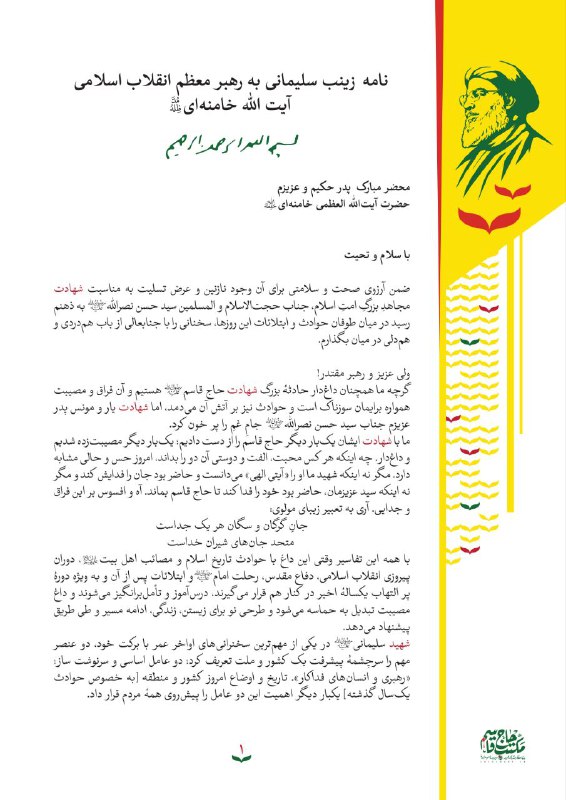 نامه زینب سلیمانی به رهبر معظم انقلاب اسلامی
آیت الله خامنه‌ای
بسم الله الرحمن الرحیم
محضر مبارک پدر حکیم و عزیزم
حضرت آیت‌الله العظمی خامنه‌ای
با سلام و تحیت
ضمن آرزوی صحت و سلامتی برای آن وجود نازنین و عرض تسلیت به مناسبت شهادت
مجاهدِ بزرگِ امتِ اسلام، جناب حجت‌الاسلام و المسلمین سید حسن نصرالله به ذهنم
رسید در میان طوفان حوادث و ابتلائات این روزها، سخنانی را با جنابعالی از باب هم‌دردی و
هم‌دلی در میان بگذارم.
ولی عزیز و رهبر مقتدر!
گرچه ما همچنان داغ‌دار حادثهٔ بزرگ شهادت حاج قاسم هستیم و آن فراق و مصیبت
همواره برایمان سوزناک است و حوادث نیز بر آتش آن می‌دمد، اما شهادت یار و مونس پدر
عزیزم جناب سید حسن نصرالله جام غم را پر خون کرد.
ما با شهادت ایشان یک‌بار دیگر حاج قاسم را از دست دادیم؛ یک‌بار دیگر مصیبت‌زده شدیم
و داغ‌دار. چه اینکه هر کس محبت، الفت و دوستی آن دو را بداند، امروز حس و حالی مشابه
دارد. مگر نه اینکه شهید ما او را «آیتی الهی» می‌دانست و حاضر بود جان را فدایش کند و مگر
نه اینکه سید عزیزمان، حاضر بود خود را فدا کند تا حاج قاسم بماند. آه و افسوس بر این فراق
و جدایی. آری به تعبیر زیبای مولوی:
جانِ گرگان و سگان هر یک جداست
متحد جان‌های شیران خداست
با همه این تفاسیر وقتی این داغ با حوادث تاریخ اسلام و مصائب اهل بیت، دوران
پیروزی انقلاب اسلامی، دفاع مقدس، رحلت امام و ابتلائات پس از آن و به ویژه دورهٔ
پر التهاب یکسالهٔ اخیر در کنار هم قرار می‌گیرند، درس‌آموز و تأمل‌برانگیز می‌شوند و داغ
مصیبت تبدیل به حماسه می‌شود و طرحی نو برای زیستن، زندگی، ادامه مسیر و طی طریق
پیشنهاد می‌دهد.
شهید سلیمانی در یکی از مهم‌ترین سخنرانی‌های اواخر عمر با برکت خود، دو عنصر
مهم را سرچشمهٔ پیشرفت یک کشور و ملت تعریف کرد؛ دو عامل اساسی و سرنوشت ساز:
«رهبری و انسان‌های فداکار». تاریخ و اوضاع امروز کشور و منطقه [به خصوص حوادث
یک‌سال گذشته] یکبار دیگر اهمیت این دو عامل را پیش‌روی همهٔ مردم قرار داد.
۱
مکتب حاج قاسم